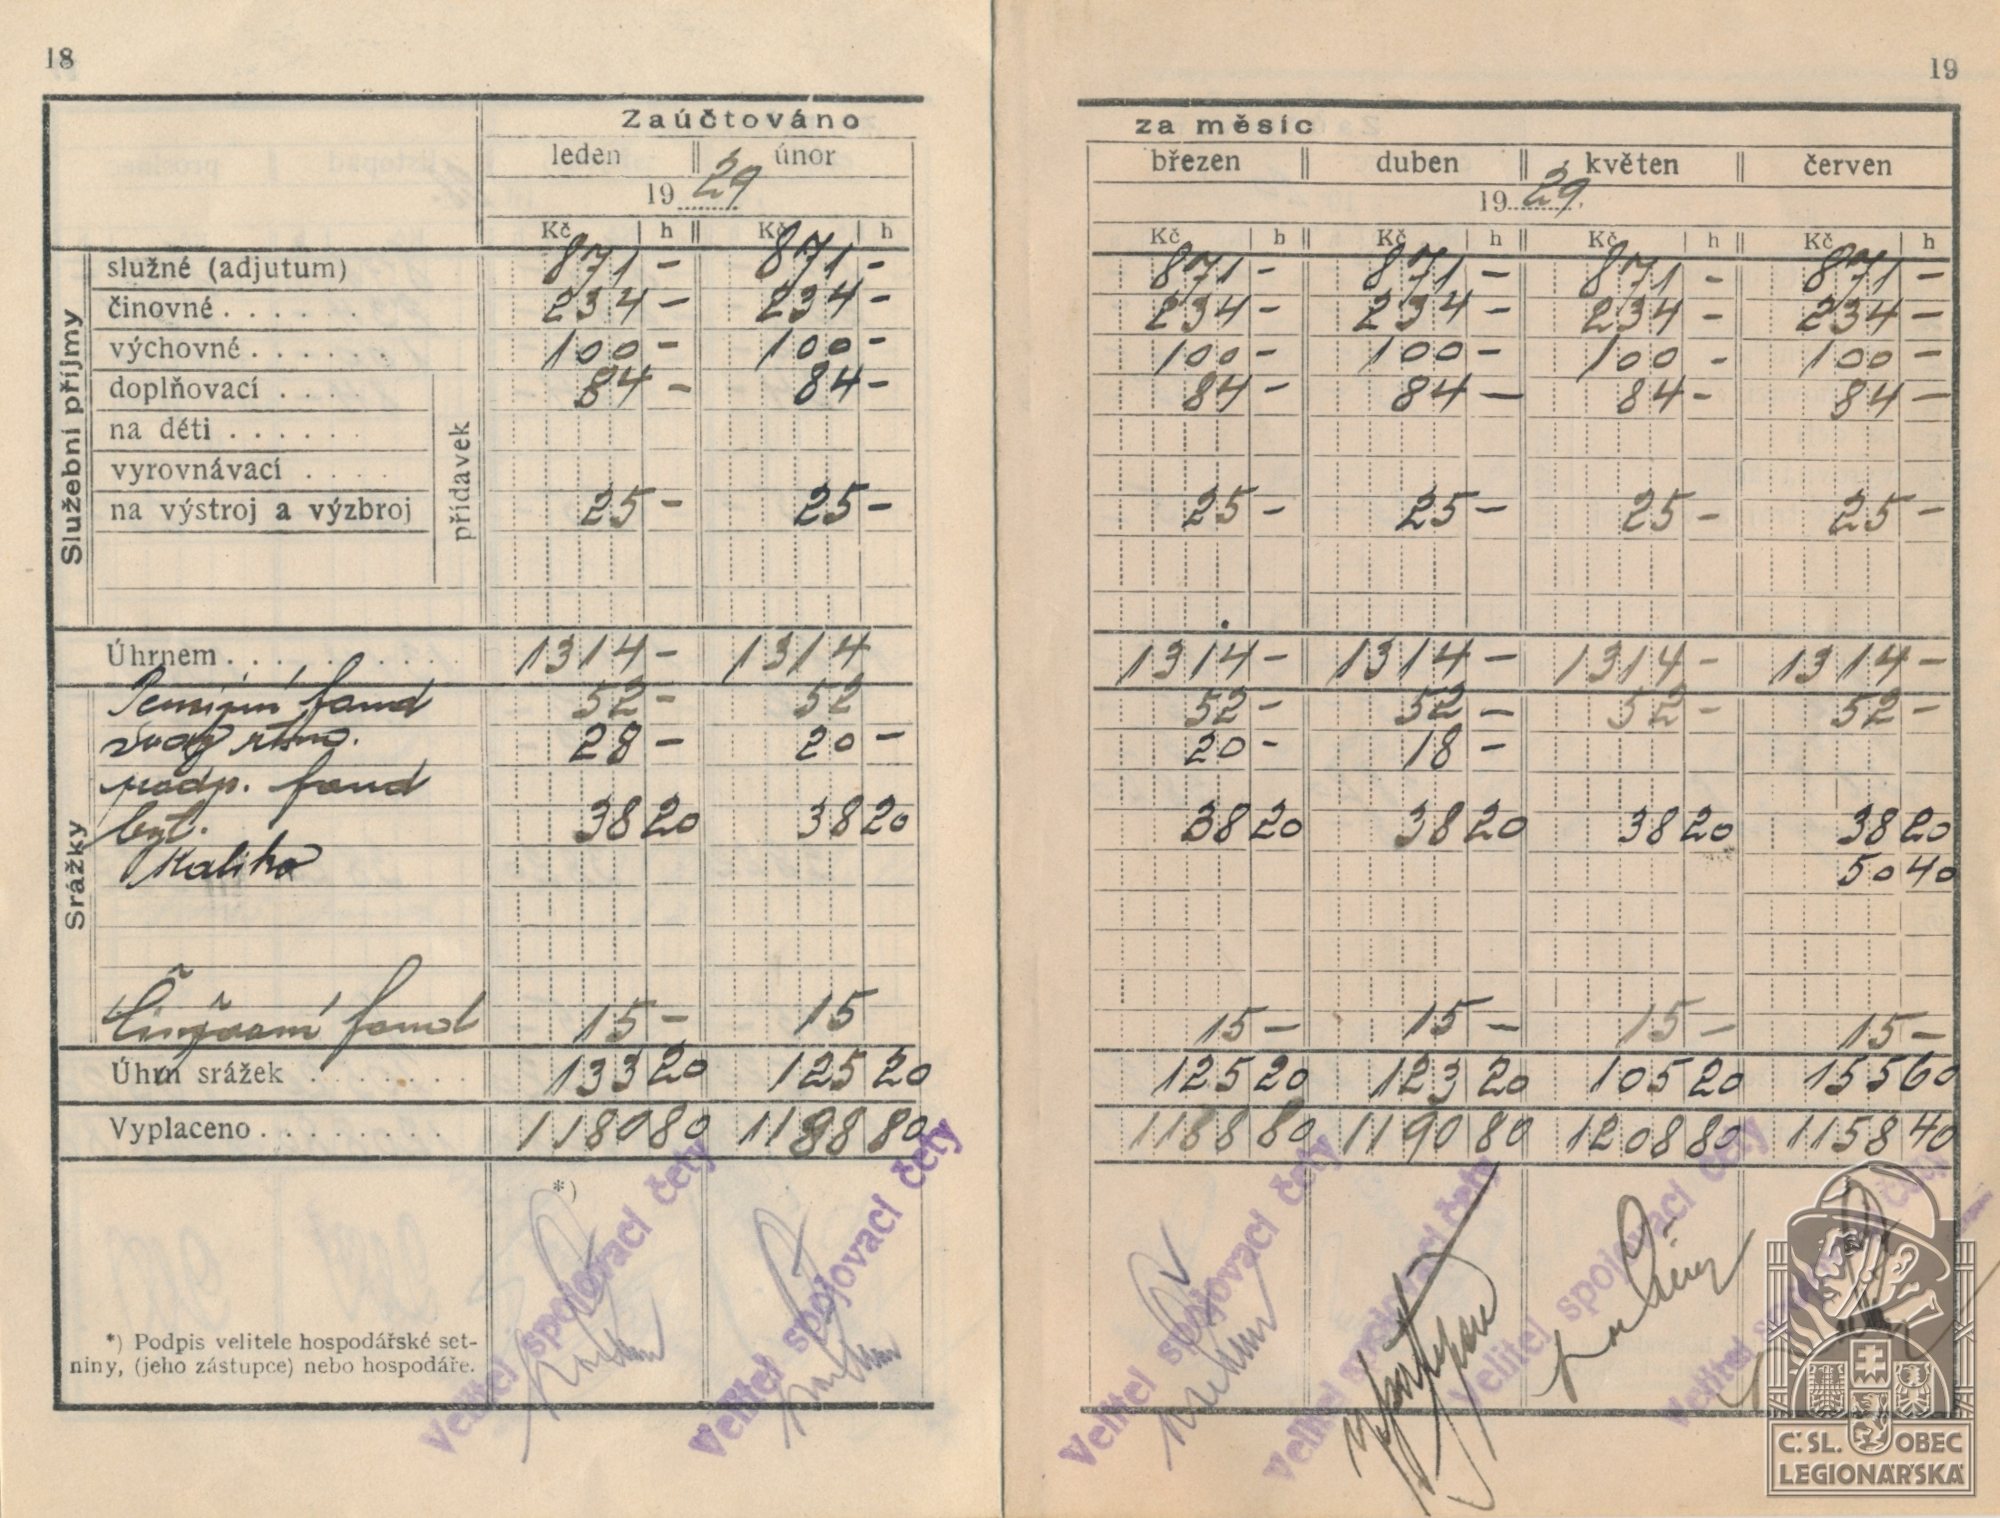 18
Zaúčtováno
leden únor
19 29
Kč h Kč h
Služební příjmy
služné (adjutum) 871 – 871 –
činovné . . . . . . 234 – 234 –
výchovné . . . . . . 100 – 100 –
doplňovací . . . . 84 – 84 –
na děti . . . . . .
vyrovnávací . . . .
na výstroj a výzbroj 25 – 25 –
přídavek
Úhrnem . . . . . . . . . . 1314 – 1314
Srážky
Pensijní fond 52 – 52
28 – 20 –
podp. fond
byt. 38 20 38 20
Kaliko
Činžovní fond 15 – 15
Úhrn srážek . . . . . . . 133 20 125 20
Vyplaceno . . . . . . . . 1180 80 1188 80
*)
Velitel spojovací čety
Velitel spojovací čety
*) Podpis velitele hospodářské set-
niny, (jeho zástupce) nebo hospodáře.
19
za měsíc
březen duben květen červen
19 29
Kč h Kč h Kč h Kč h
871 – 871 – 871 – 871 –
234 – 234 – 234 – 234 –
100 – 100 – 100 – 100 –
84 – 84 – 84 – 84 –
25 – 25 – 25 – 25 –
1314 – 1314 – 1314 – 1314 –
52 – 52 – 52 – 52 –
20 – 18 –
38 20 38 20 38 20 38 20
50 40
15 – 15 – 15 – 15 –
125 20 123 20 105 20 155 60
1188 80 1190 80 1208 80 1158 40
Velitel spojovací čety
Velitel spojovací čety
Velitel spojovací čety
Velitel spojovací čety
Č. SL. OBEC
LEGIONÁŘSKÁ